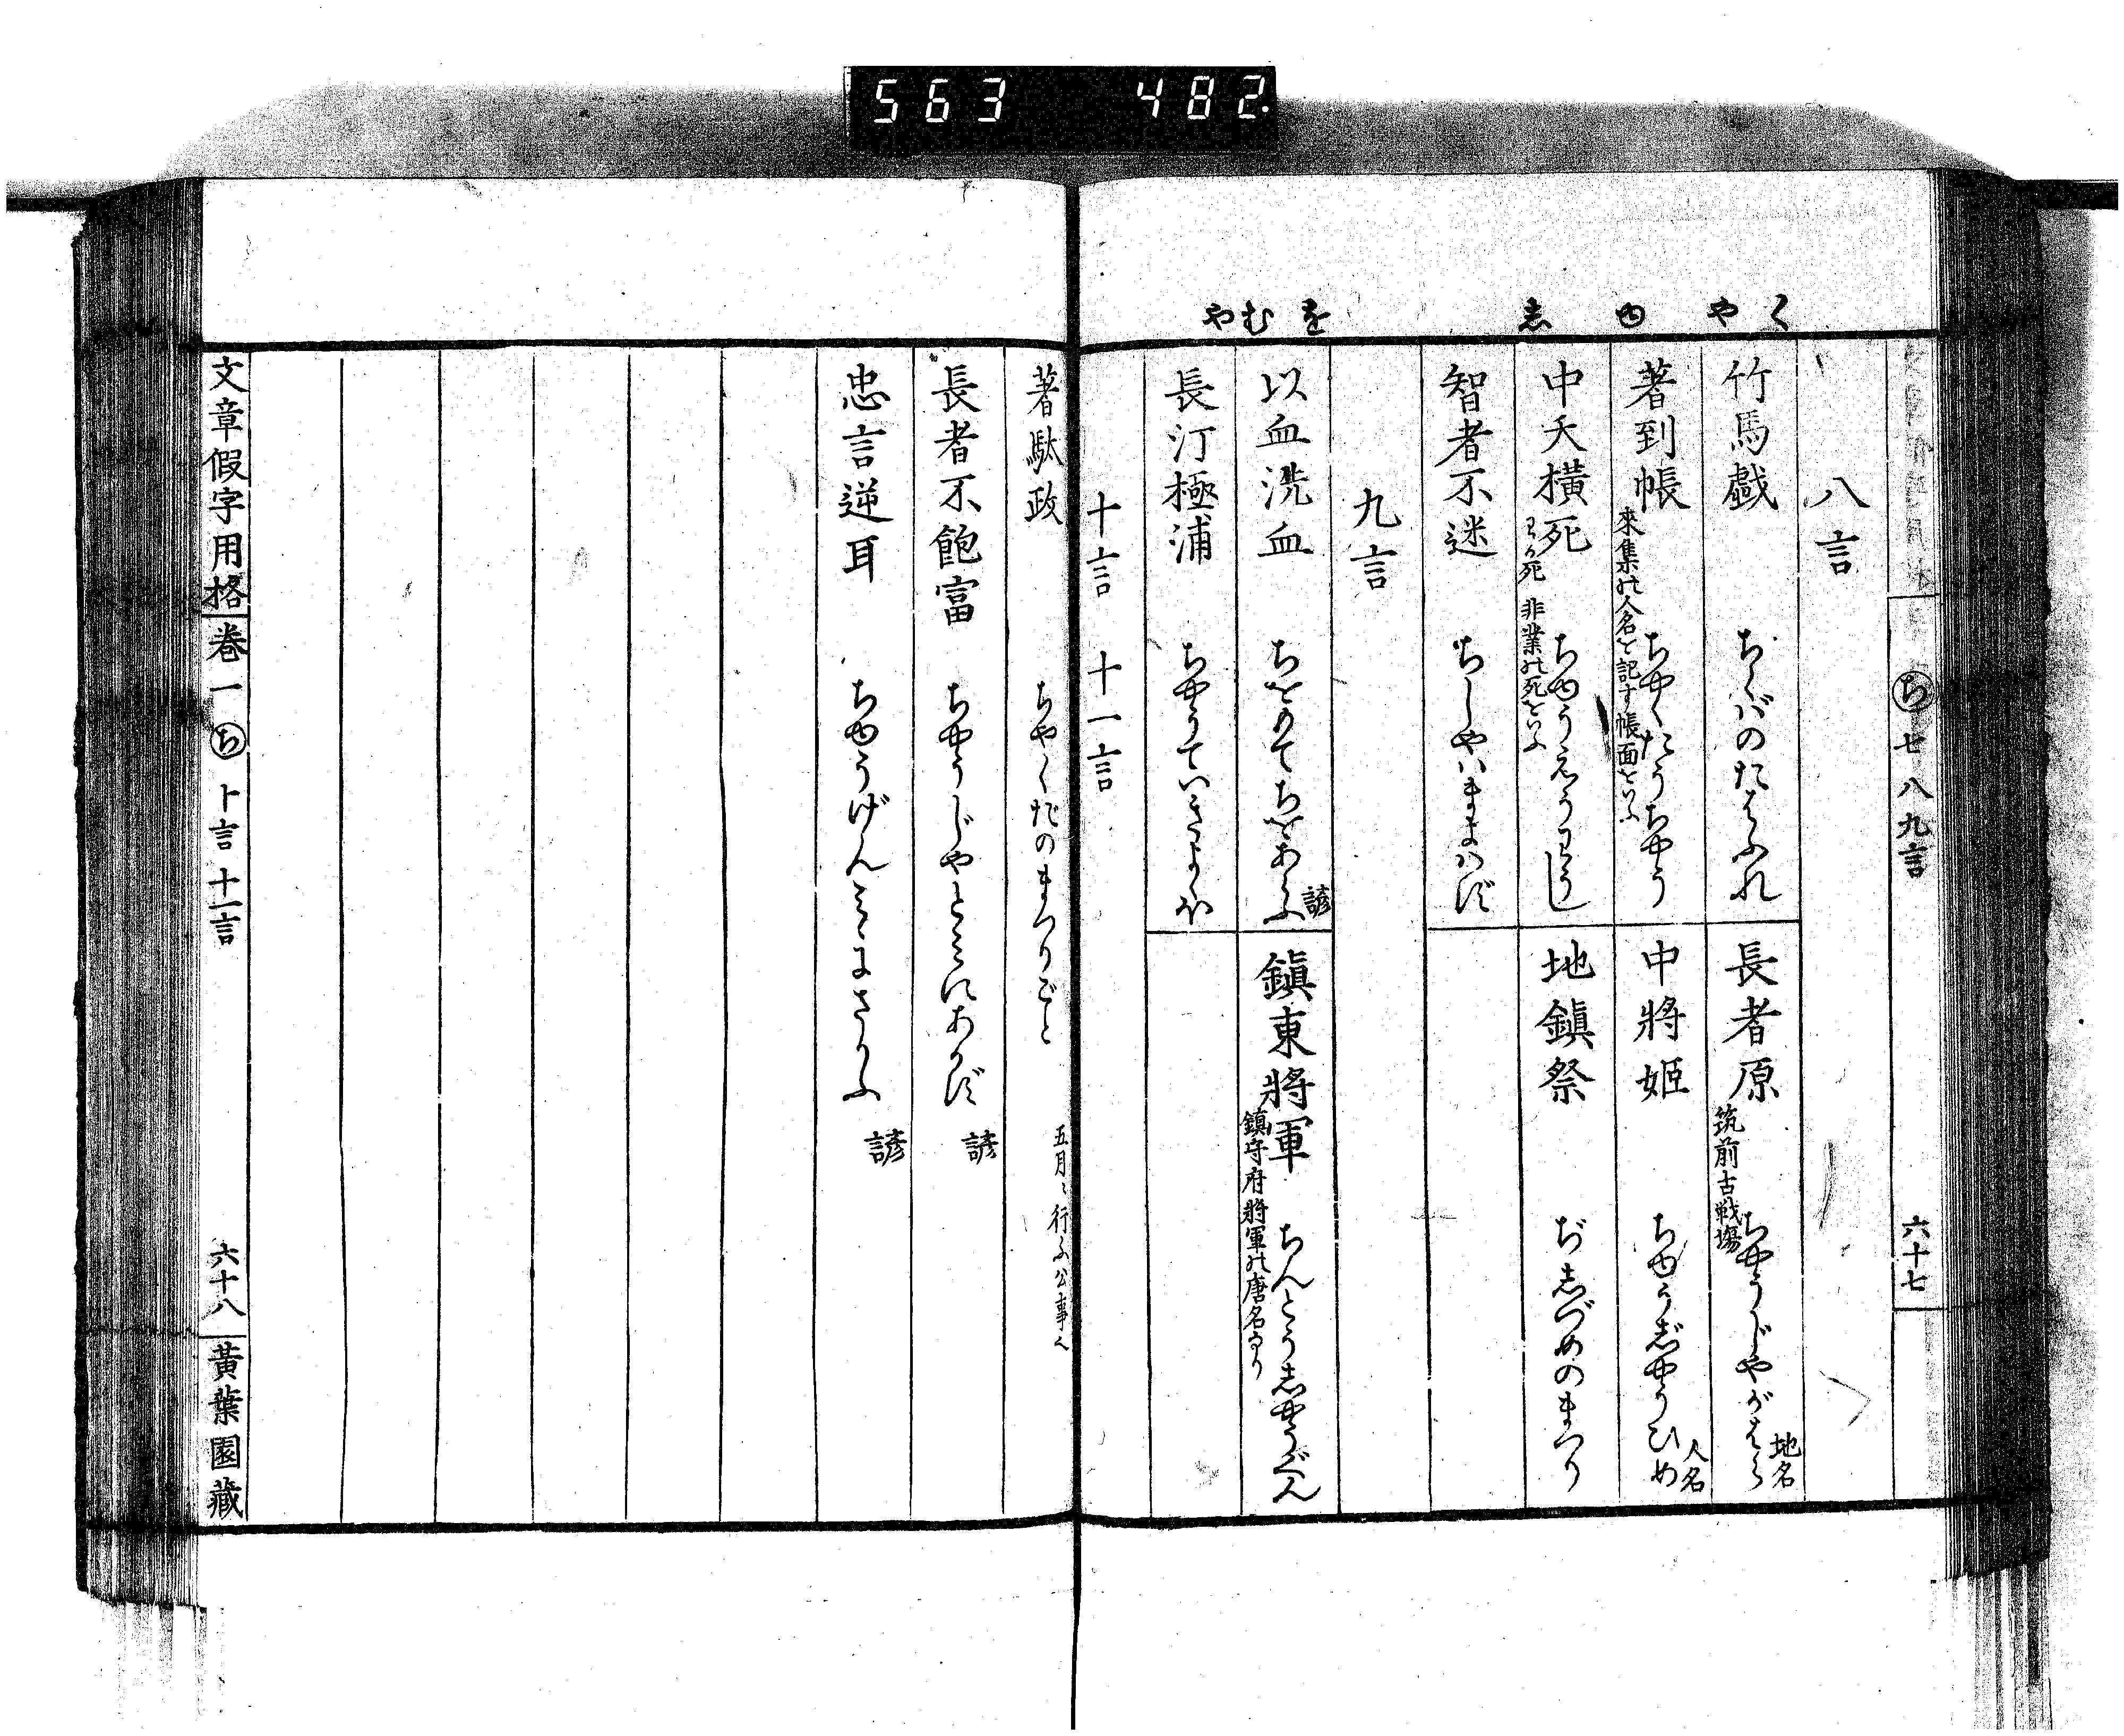 563 482
く や ゆ し
を む や
㋠ 七 八 九言 六十七
八言
竹馬戯 ちくばのたはふれ
長者原 ちやうじやがはら 地名
筑前古戦場
著到帳 ちやくたうちやう
來集の人名を記す帳面をいふ
中將姫 ちゆうじやうひめ 人名
中夭橫死 ちゆうえうわうし
わか死 非業の死をいふ
地鎭祭 ぢしづめのまつり
智者不迷 ちしやはまよはず
九言
以血洗血 ちをもてちをあらふ 諺
鎭東將軍 ちんとうしやうぐん
鎭守府將軍の唐名なり
長汀極浦 ちやうていきよくほ
十言 十一言
著駄政 ちやくだのまつりごと 五月に行ふ公事也
長者不飽富 ちやうじやとみにあかず 諺
忠言逆耳 ちゆうげんみみにさかふ 諺
文章假字用格 卷一 ㋠ 十言 十一言 六十八 黃葉園藏